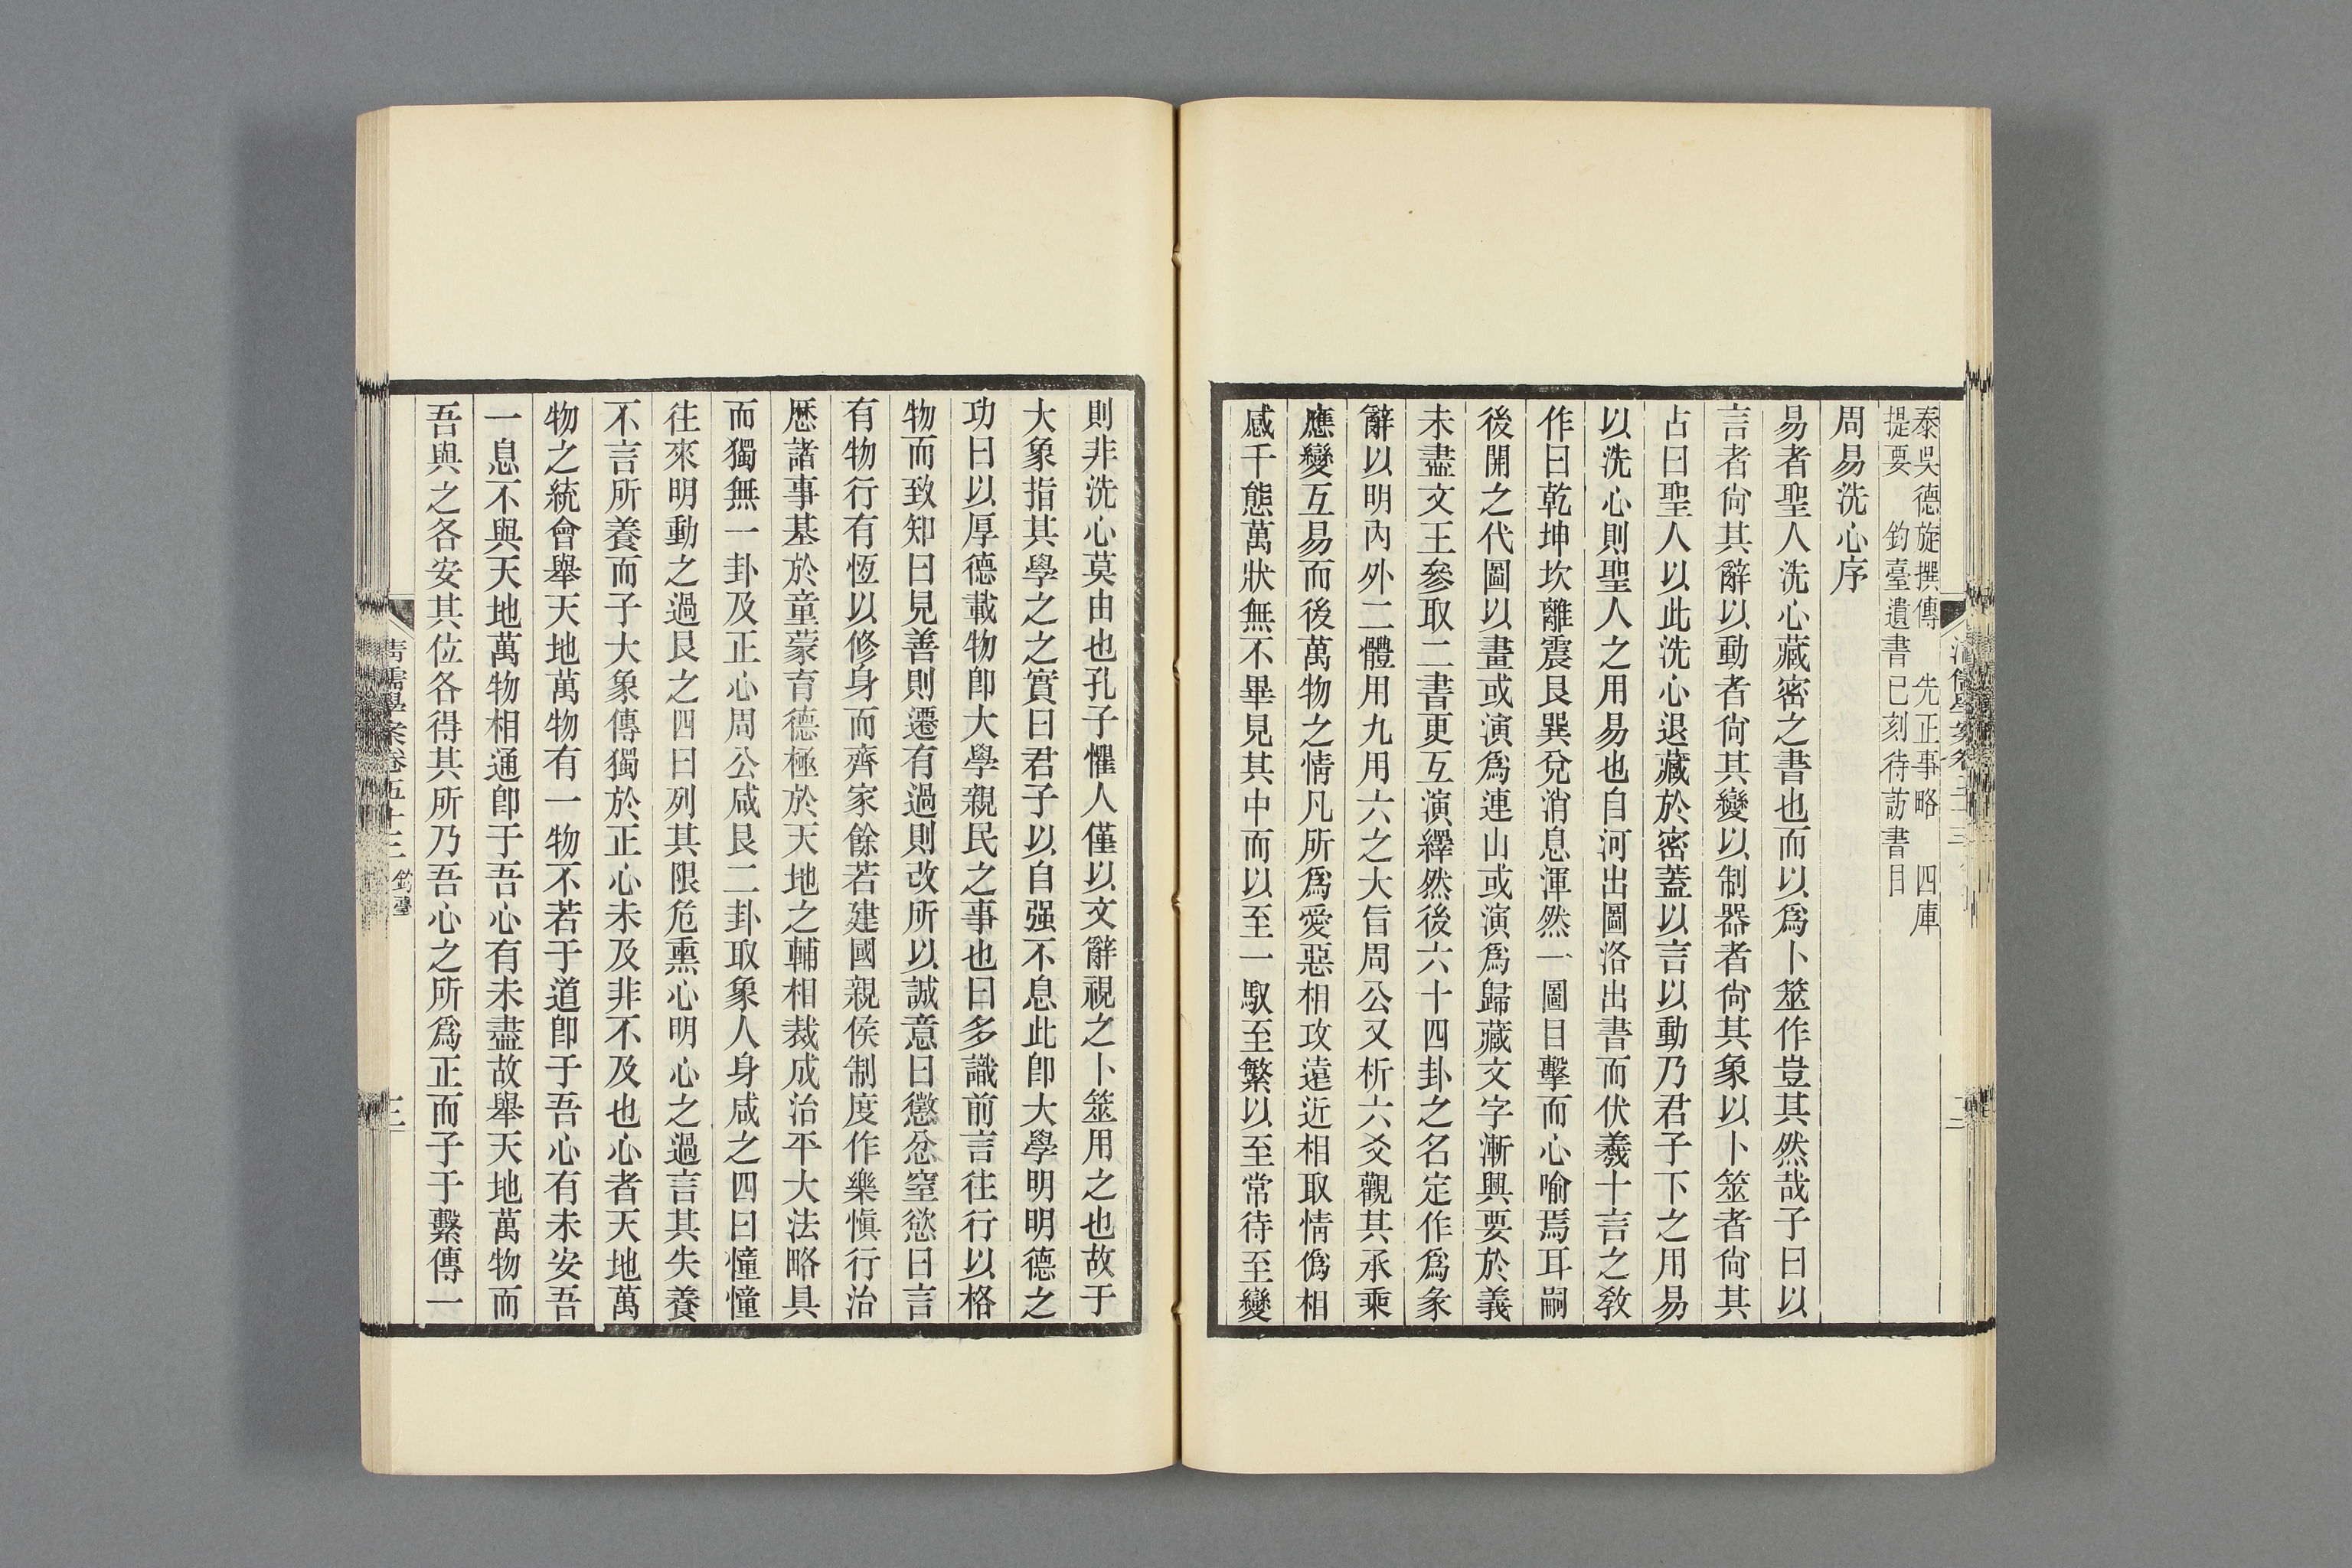 泰吳德旋撰傳　先正事略　四庫
提要　鈞臺遺書已刻待訪書目
周易洗心序
易者聖人洗心藏密之書也而以爲卜筮作豈其然哉子曰以
言者尙其辭以動者尙其變以制器者尙其象以卜筮者尙其
占曰聖人以此洗心退藏於密蓋以言以動乃君子下之用易
以洗心則聖人之用易也自河出圖洛出書而伏羲十言之敎
作曰乾坤坎離震艮巽兌消息渾然一圖目擊而心喻焉耳嗣
後開之代圖以畫或演爲連山或演爲歸藏文字漸興要於義
未盡文王參取二書更互演繹然後六十四卦之名定作爲彖
辭以明內外二體用九用六之大旨周公又析六爻觀其承乘
應變互易而後萬物之情凡所爲愛惡相攻遠近相取情僞相
感千態萬狀無不畢見其中而以至一馭至繁以至常待至變
則非洗心莫由也孔子懼人僅以文辭視之卜筮用之也故于
大象指其學之之實曰君子以自强不息此卽大學明明德之
功曰以厚德載物卽大學親民之事也曰多識前言往行以格
物而致知曰見善則遷有過則改所以誠意曰懲忿窒慾曰言
有物行有恆以修身而齊家餘若建國親侯制度作樂愼行治
歷諸事基於童蒙育德極於天地之輔相裁成治平大法略具
而獨無一卦及正心周公咸艮二卦取象人身咸之四曰憧憧
往來明動之過艮之四曰列其限危熏心明心之過言其失養
不言所養而子大象傳獨於正心未及非不及也心者天地萬
物之統會舉天地萬物有一物不若于道卽于吾心有未安吾
一息不與天地萬物相通卽于吾心有未盡故舉天地萬物而
吾與之各安其位各得其所乃吾心之所爲正而子于繫傳一
淸儒學案卷五十三　鈞臺　三